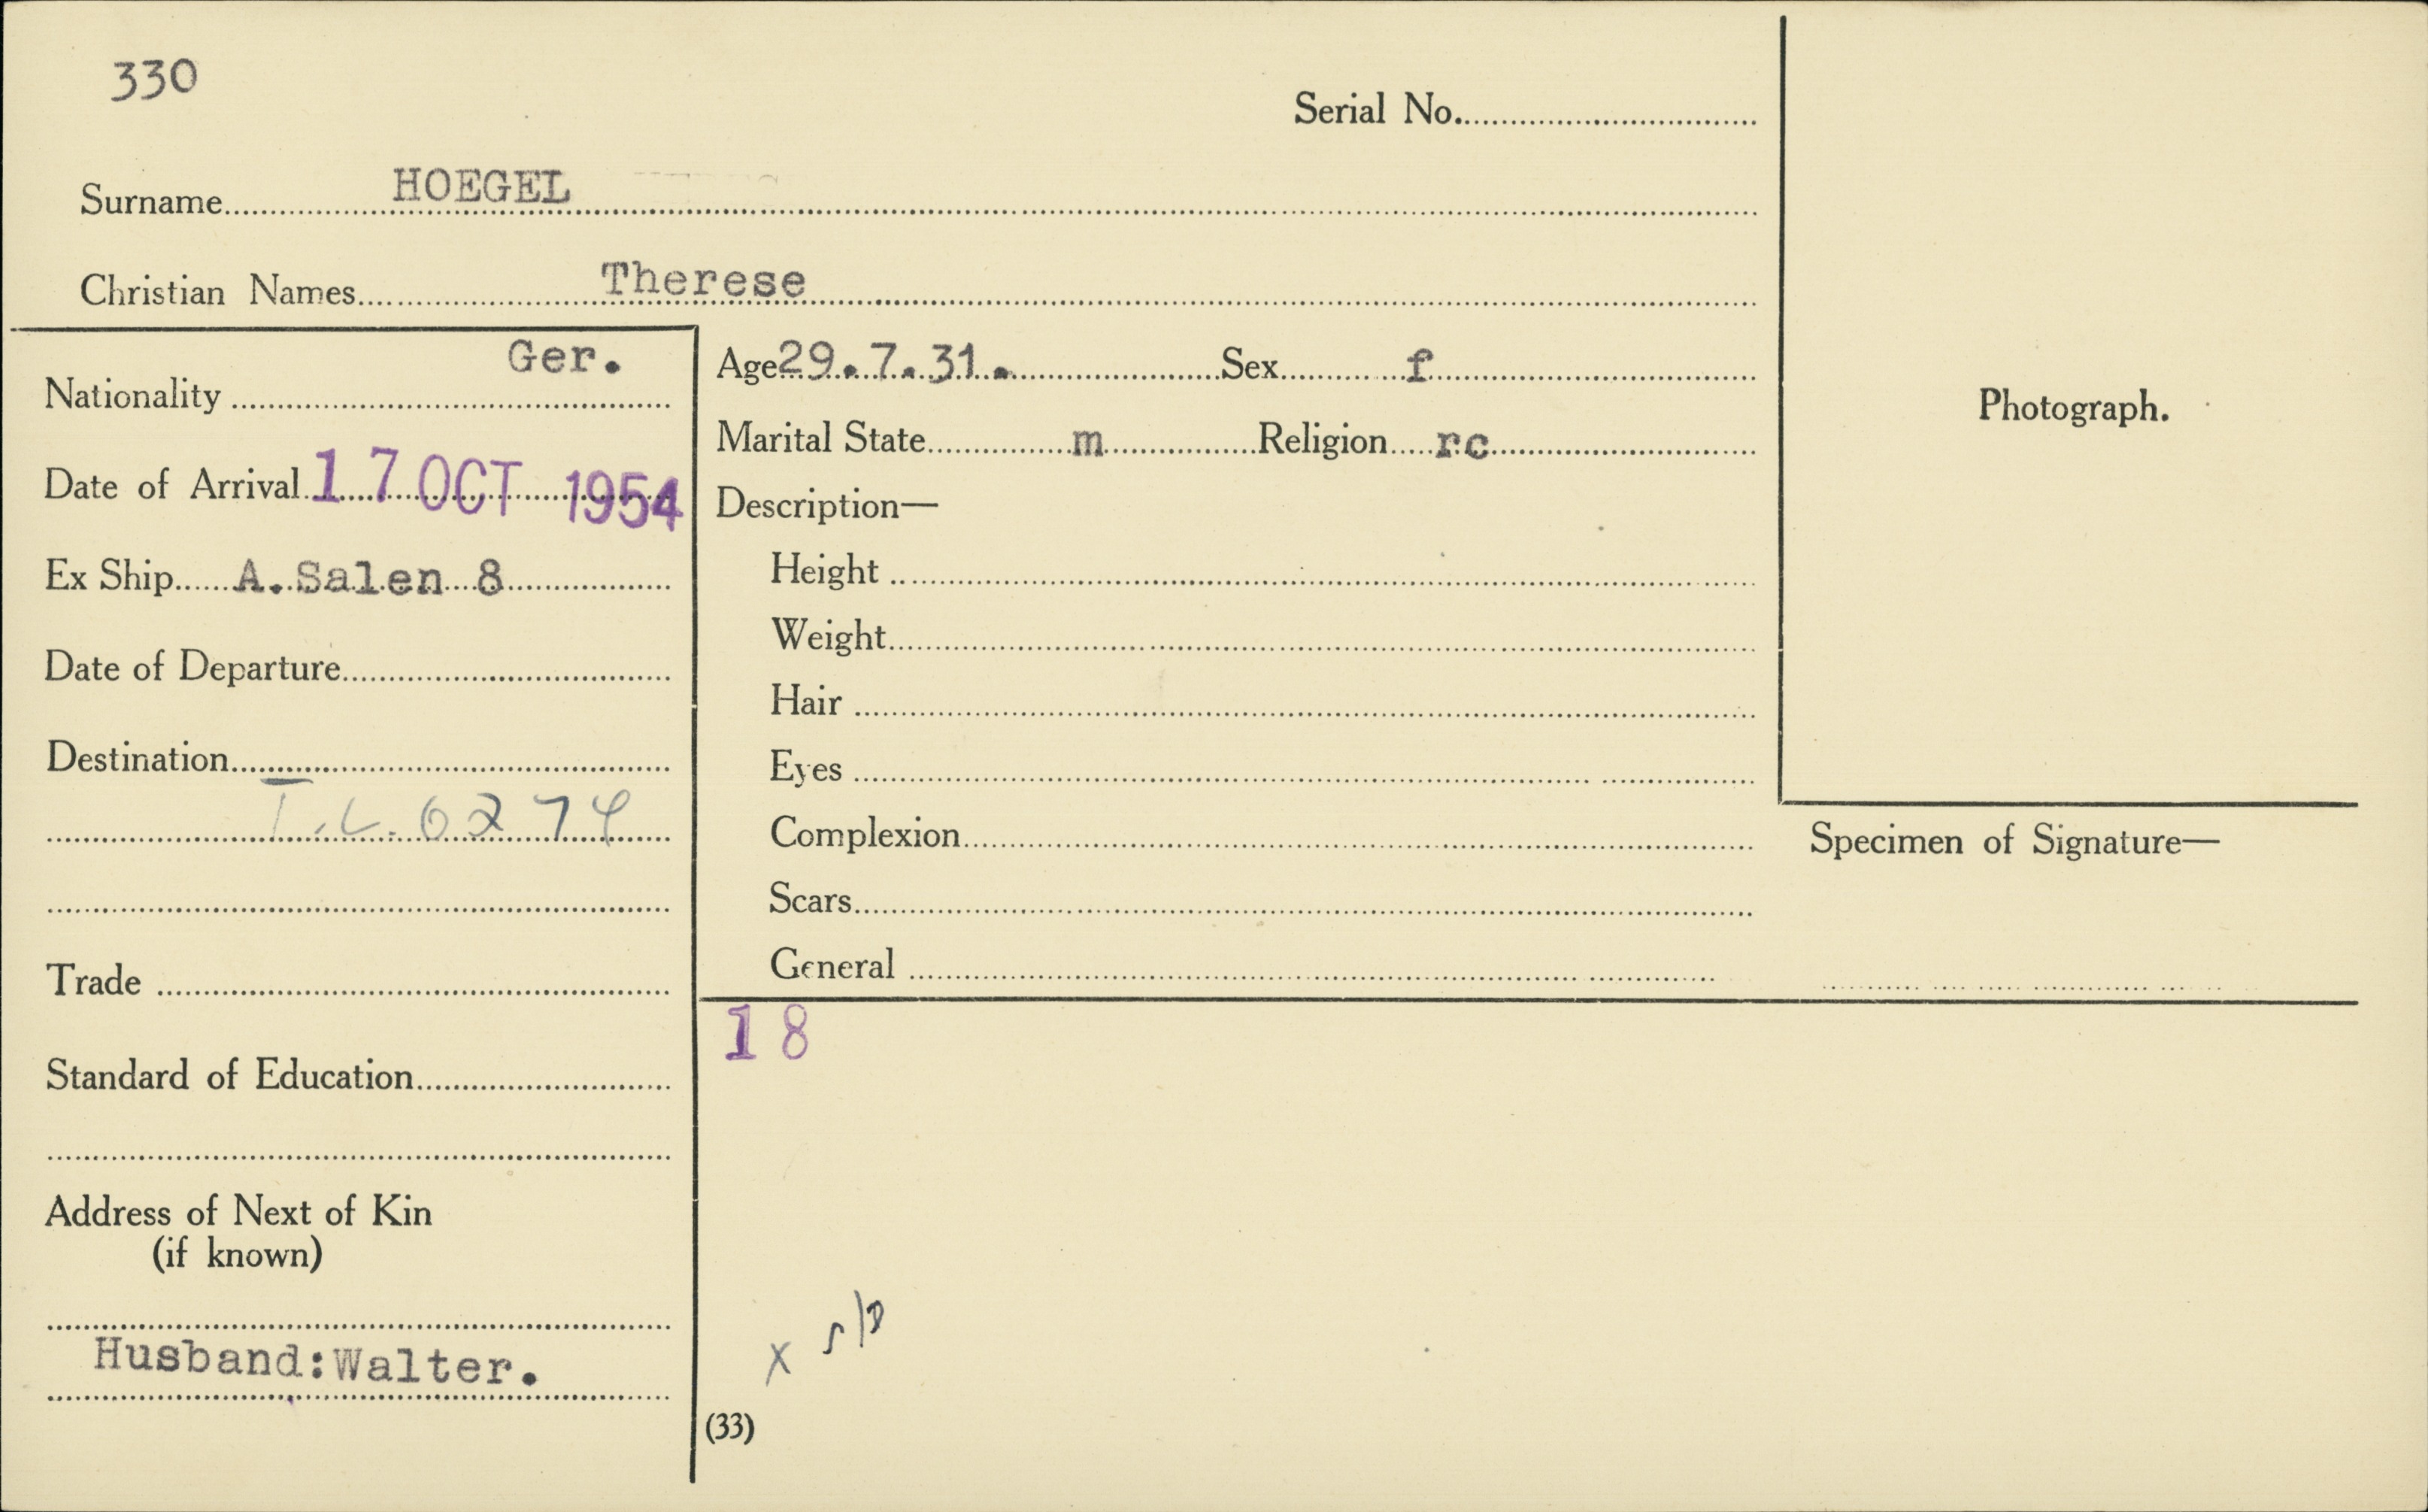 330
Serial No.
Surname HOEGEL
Christian Names Therese
Nationality Ger.
Date of Arrival 17 OCT 1954
Ex Ship A.Salen 8
Date of Departure
Destination
T.L. 6274
Trade
Standard of Education
Address of Next of Kin
(if known)
Husband:Walter.
Age 29.7.31. Sex f
Marital State m Religion rc
Description—
Height
Weight
Hair
Eyes
Complexion
Scars
General
Photograph.
Specimen of Signature—
18
x
(33)